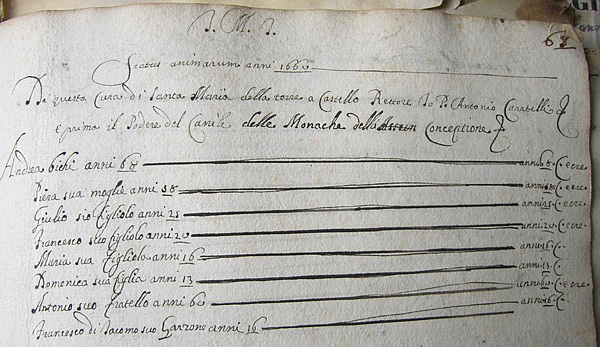 J. M. J.
68
Status animarum anni 1660
Di questa Cura di Santa Maria della torre a Castello Rettore Io Po Antonio Caratelli
e prima il Podere del Canile delle Monache della Conceptione
Andrea bichi anni 68 anni 68. C. e cre.
Piera sua moglie anni 58 anni 58 C. e cre.
Giulio sio figliolo anni 25 anni 25 C. e cre.
Francesco suo figliolo anni 20 anni 20. C. e cre.
Maria sua figliola anni 16 anni 16. C.
Domenica sua figlia anni 13 anni 13. C.
Antonio suo fratello anni 60 anni 60. C. e cre.
Francesco di Jacomo suo Garzone anni 16 anni 16. C.